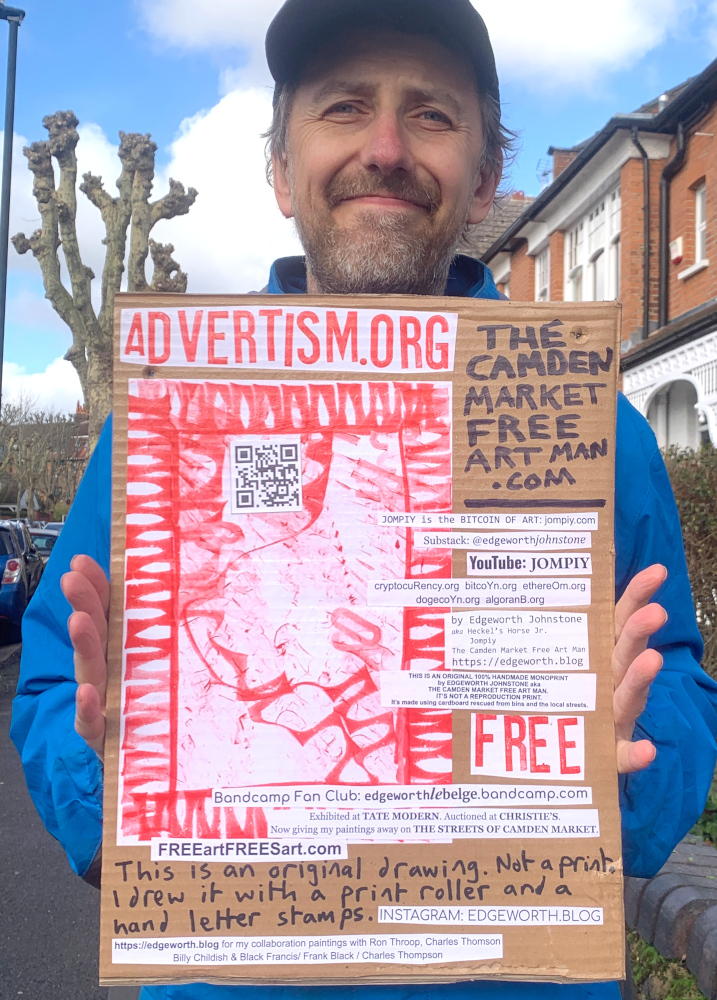 ADVERTISM.ORG
THE
CAMDEN
MARKET
FREE
ART MAN
.COM
JOMPIY is the BITCOIN OF ART: jompiy.com
Substack: @edgeworthjohnstone
YouTube: JOMPIY
cryptocuRency.org bitcoYn.org ethereOm.org
dogecoYn.org algoranB.org
by Edgeworth Johnstone
aka Heckel's Horse Jr.
Jompiy
The Camden Market Free Art Man
https://edgeworth.blog
THIS IS AN ORIGINAL 100% HANDMADE MONOPRINT
by EDGEWORTH JOHNSTONE aka
THE CAMDEN MARKET FREE ART MAN.
IT'S NOT A REPRODUCTION PRINT.
It's made using cardboard rescued from bins and the local streets.
FREE
Bandcamp Fan Club: edgeworthlebelge.bandcamp.com
Exhibited at TATE MODERN. Auctioned at CHRISTIE'S.
Now giving my paintings away on THE STREETS OF CAMDEN MARKET.
FREEartFREESart.com
This is an original drawing. Not a print.
I drew it with a print roller and a
hand letter stamps. INSTAGRAM: EDGEWORTH.BLOG
https://edgeworth.blog for my collaboration paintings with Ron Throop, Charles Thomson
Billy Childish & Black Francis/ Frank Black / Charles Thompson